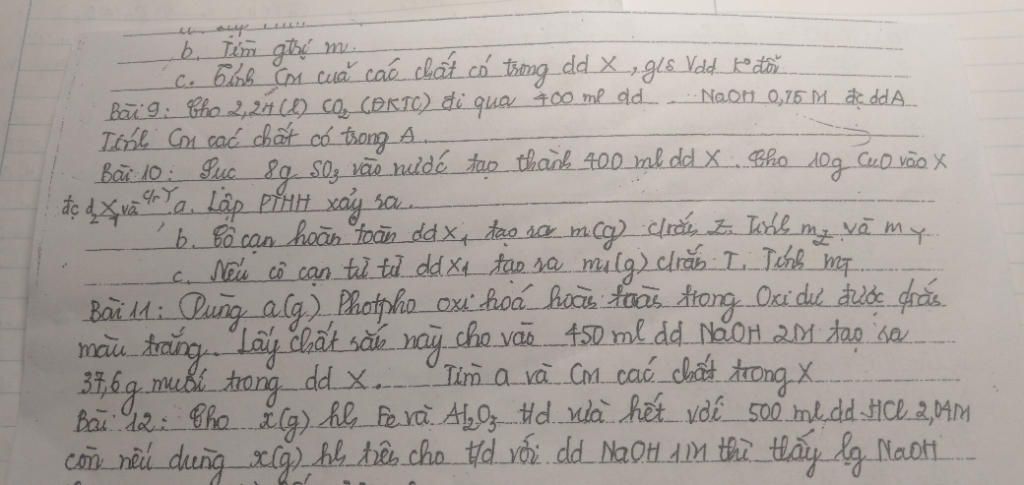 b. Tìm gtrị m.
c. Tính CM của các chất có trong dd X, g/s Vdd k° đổi
Bài 9: Cho 2,24 (l) CO2 (ĐKTC) đi qua 400 ml dd NaOH 0,75M đc ddA
Tính CM các chất có trong A.
Bài 10: Sục 8g SO3 vào nước tạo thành 400 ml dd X. Cho 10g CuO vào X
đc d2 X1 và c/r Y a. Lập PTHH xảy ra.
b. Cô cạn hoàn toàn dd X1 tạo ra m(g) c/rắn Z. Tính mZ và mY
c. Nếu cô cạn từ từ dd X1 tạo ra m1(g) c/rắn T. Tính mT
Bài 11: Dùng a(g) Photpho oxi hoá hoàn toàn trong Oxi dư được c/rắn
màu trắng. Lấy chất rắn này cho vào 450 ml dd NaOH 2M tạo ra
37,6g muối trong dd X. Tìm a và CM các chất trong X
Bài 12: Cho x(g) hh Fe và Al2O3 t/d vừa hết với 500 ml dd HCl 2,04M
còn nếu dùng x(g) hh trên cho t/d với dd NaOH 1M thì thấy lg NaOH